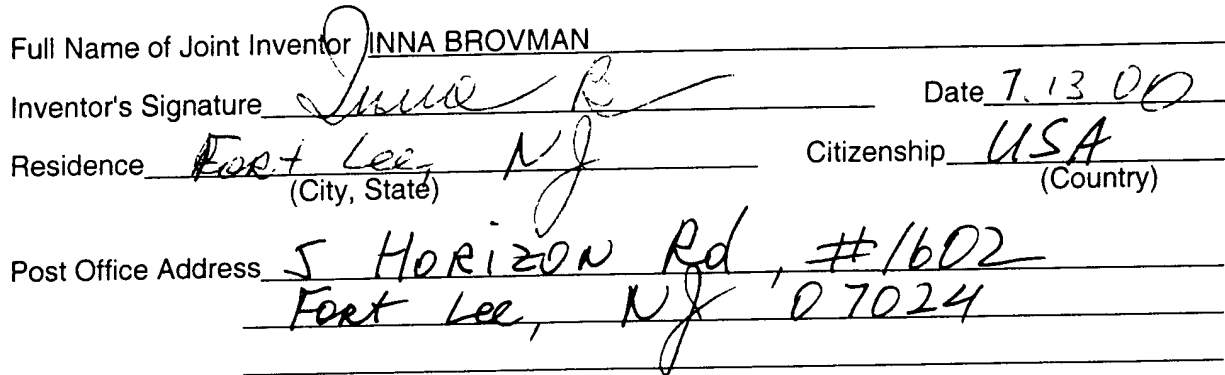 Full Name of Joint Inventor INNA BROVMAN
Inventor's Signature Inna B Date 7.13 00
Residence Fort Lee, NJ Citizenship USA
(City, State) (Country)
Post Office Address 5 HORIZON Rd, #1602
Fort Lee, NJ 07024